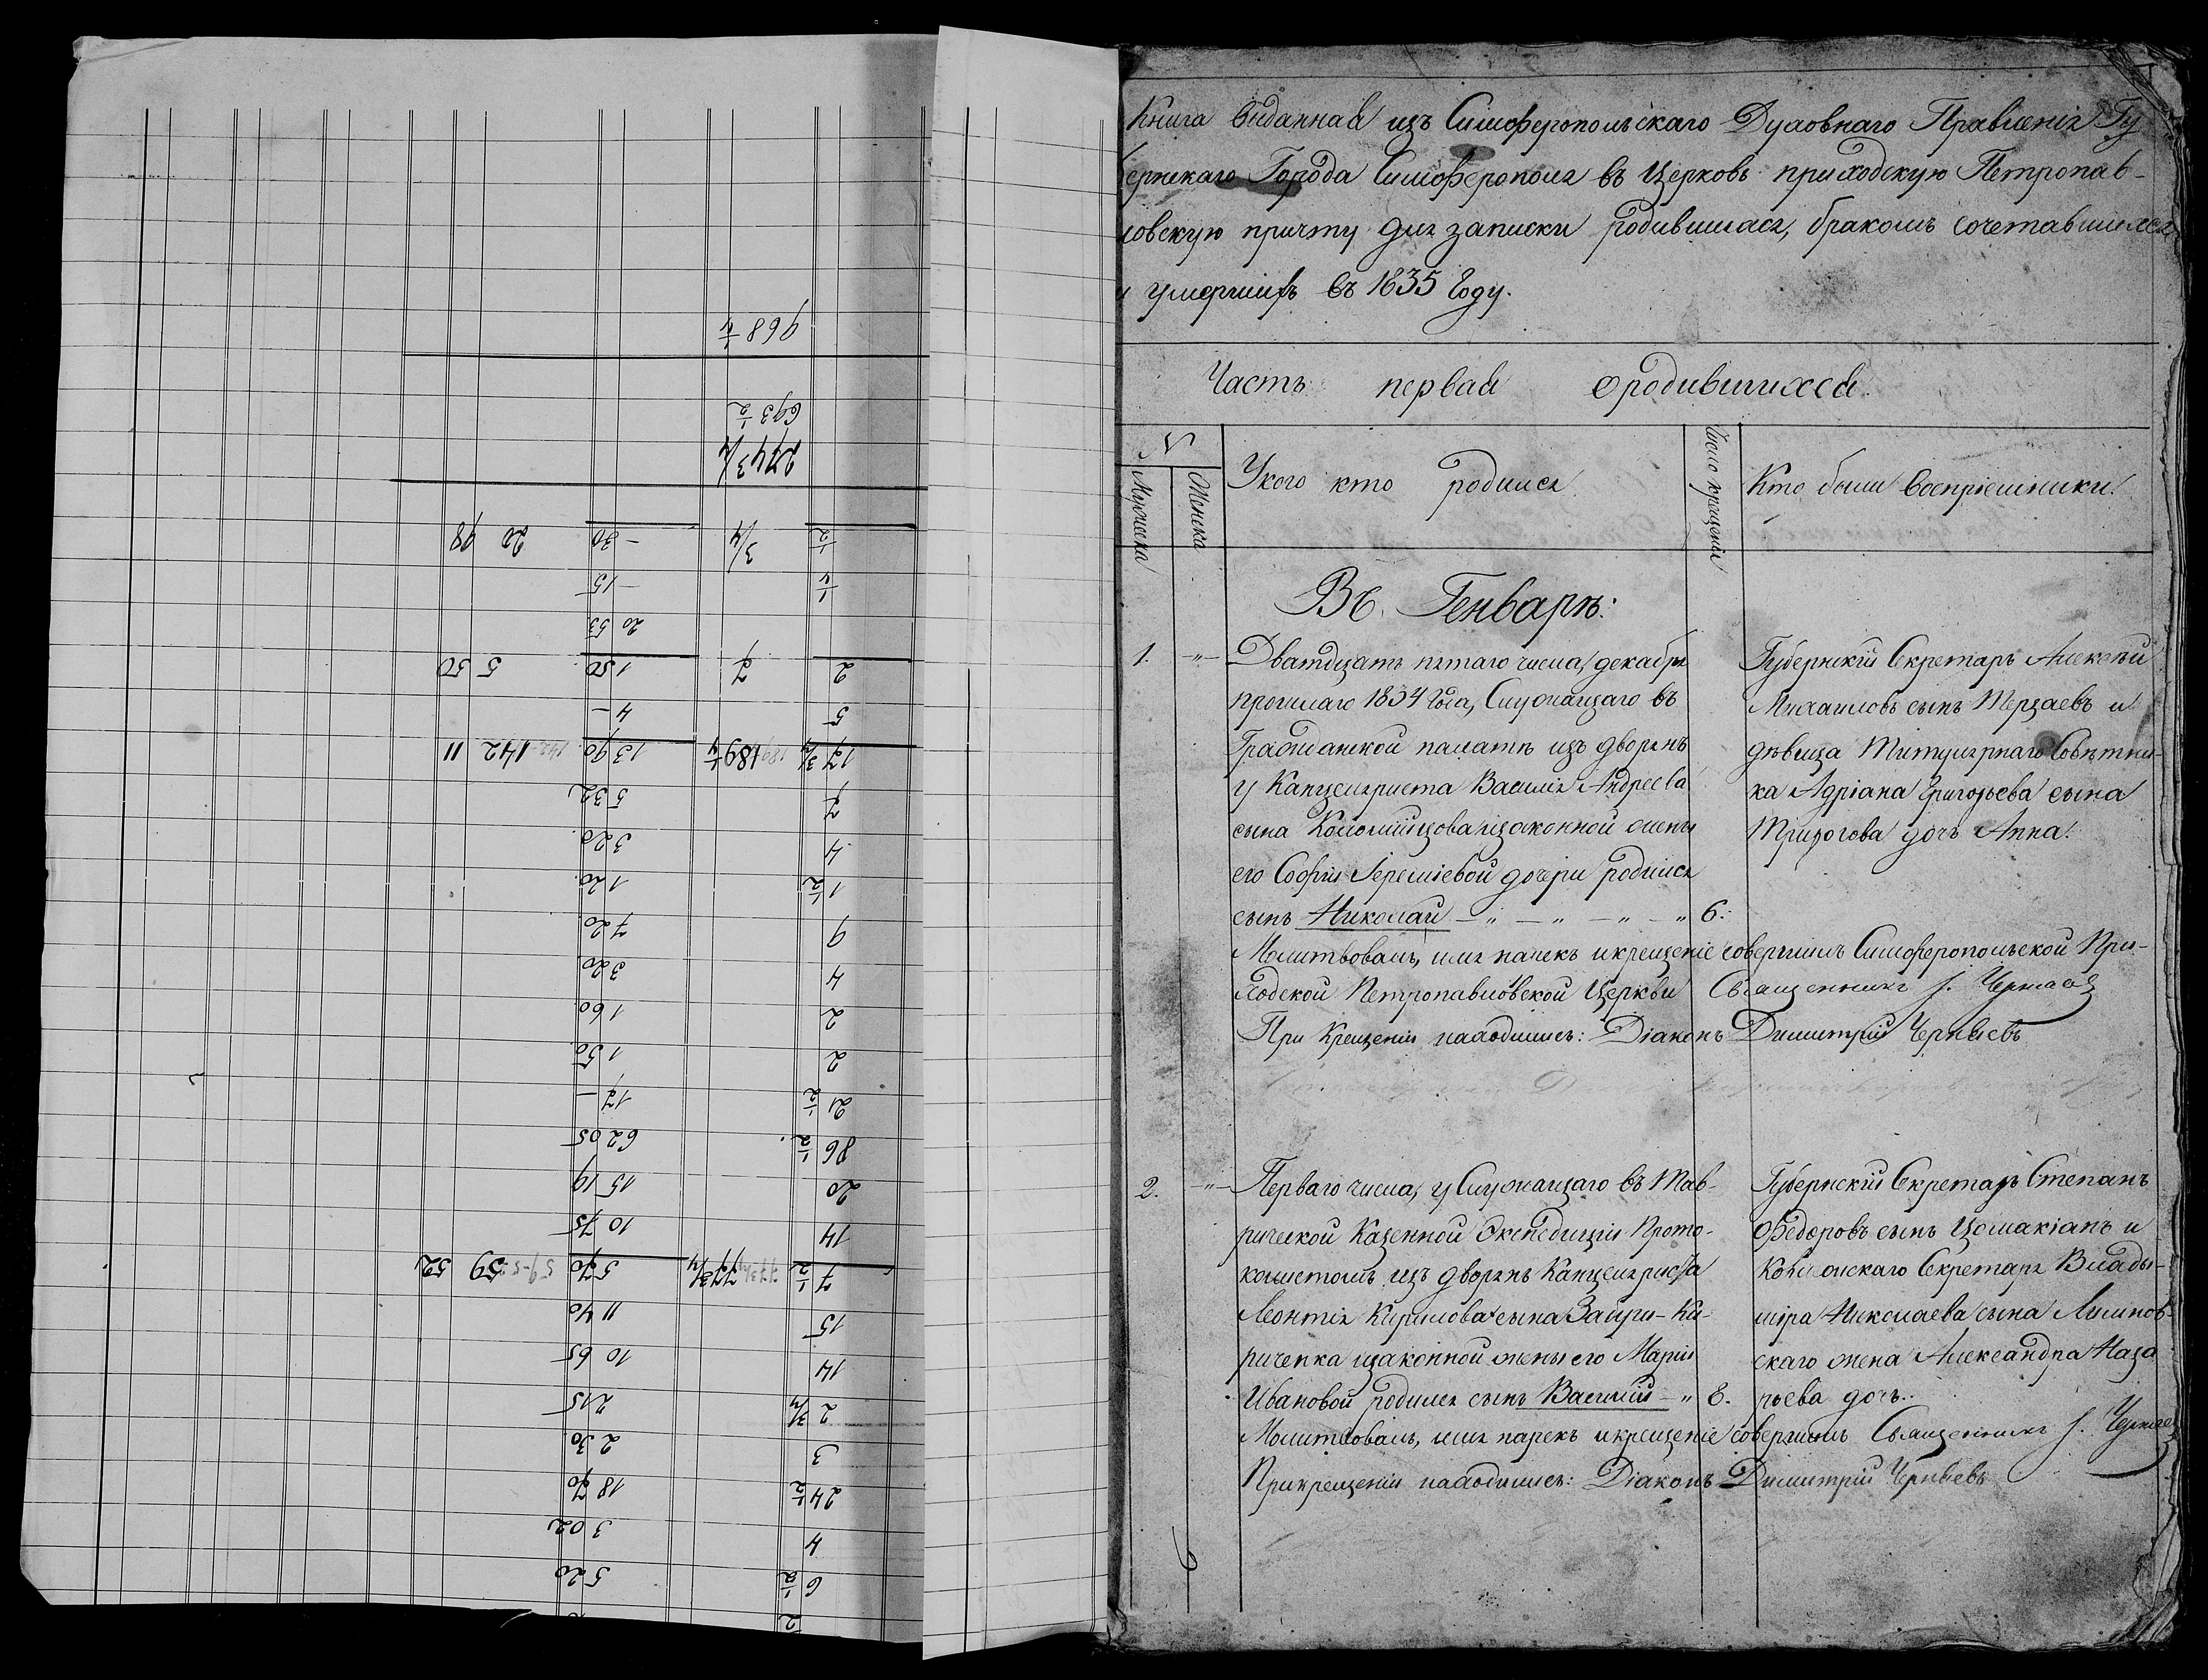 Книга выданная изъ Симферопольскаго Духовнаго Правленія Гу
бернскаго Города Симферополя въ Церковь приходскую Петропав-
ловскую причту для записки родившихся, бракомъ сочетавшихся
и умершихъ въ 1835 Году.
Часть первая о родившихся.
N
Мужеска
Женска
У кого кто родился
Число крещенія
Кто были Воспріемники.
Въ Генварѣ:
1. —"— Дватдцать пятаго числа, декабря
прошлаго 1834 Года, Служащаго въ
Гражданской палатѣ изъ дворянъ
у Канцеляриста Василія Андреева
сына Коломійцова изаконной жены
его Софіи Іереміевой дочери родился
сынъ Николай —"—"—"—" 6.
Губернскій Секретарь Алексѣй
Михаиловъ сынъ и
дѣвица Титулярнаго Совѣтни-
ка Адріана Григорьева сына
дочь Анна.
Молитвовалъ, имя нарекъ икрещеніе совершилъ Симферопольской При-
ходской Петропавловской Церкви Священникъ І.
При Крещеніи находились: Діаконъ Димитрій Чернѣевъ
2. —"— Перваго числа, у Служащаго въ Тав-
рической Казенной Экспедиціи Прото-
колистомъ изъ дворянъ Канцеляриста
Леонтія Кирилова сына Заири-Ки-
риченка изаконной жены его Маріи
Ивановой родился сынъ Василій —" 8.
Губернскій Секретарь Степанъ
Федоровъ сынъ Цомакіанъ и
Колежскаго Секретаря Влады-
міра Николаева сына
скаго жена Александра Наза
рьева дочь.
Молитвовалъ, имя нарекъ икрещеніе совершилъ Священникъ І.
Прикрещеніи находились: Діаконъ Димитрій Чернѣевъ
2
6 1/2 5 20
4 3 02
24 1/2 18 70
3 2 30
2 3/4 2 15
14 10 65
15 11 40
7 1/2 5 70 59 52
14 10 75
20 15 19
86 1/2 62 05
21 1/2 17 —
2 1 50
2 1 60
4 3 20
9 7 20
1 1/2 1 20
4 3 20
7 5 32
17 3/4 13 90 189 1/4 142 11
5 4 —
2 1 50 7 5 50
20 53
1/4 15 —
1/2 30 — 3/4 20 98
274 3/4
693 1/2
968 1/4